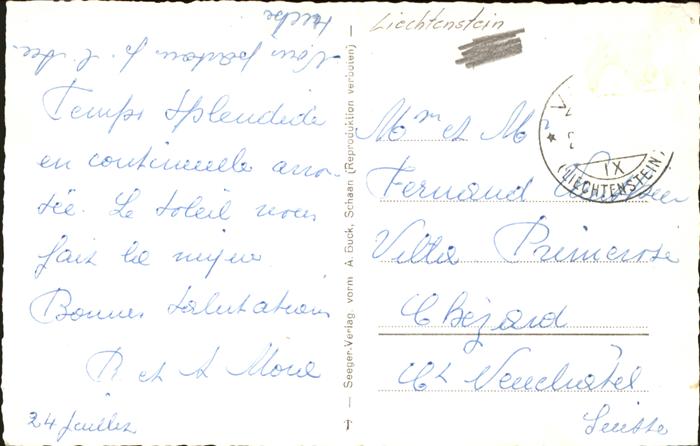 Liechtenstein
Temps splendide
en continuelle
Le soleil nous
fait le
Bonnes salutations
R et A
24 Juillet
Seeger-Verlag, vorm A. Buck, Schaan (Reproduktion verboten)
Mme et Mr
Fernand
Villa Primerose
Chézard
Ct Neuchâtel
Suisse
IX
(LIECHTENSTEIN)